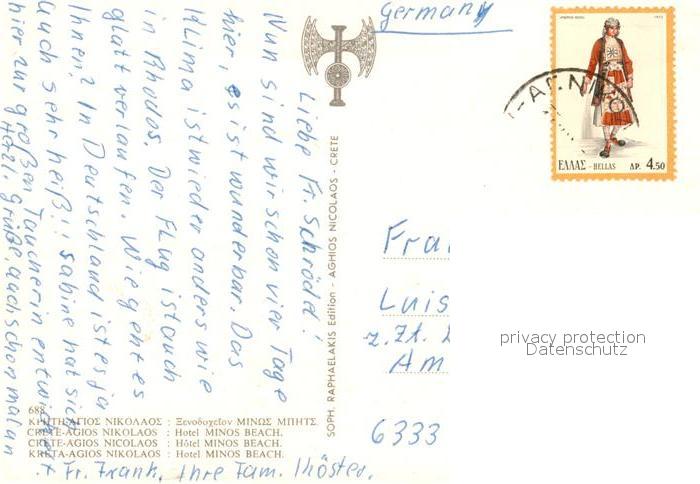 Germany
ΕΛΛΑΣ - HELLAS ΔΡ. 4.50
Liebe Fr. Schrödel!
Nun sind wir schon vier Tage
hier, es ist wunderbar. Das
Klima ist wieder anders wie
in Rhodos. Der Flug ist auch
glatt verlaufen. Wie geht es
Ihnen? In Deutschland ist es ja
auch sehr heiß!! Sabine hat sich
hier zur großen Taucherin entwickelt
Herzl. Grüße, auch schon mal an
Fr. Frank, Ihre Fam.
SOPH. RAPHAELAKIS Edition - AGHIOS NICOLAOS - CRETE
Fra
Luis
z.Zt.
Am
6333
privacy protection
Datenschutz
688
ΚΡΗΤΗ-ΑΓΙΟΣ ΝΙΚΟΛΑΟΣ : Ξενοδοχεῖον ΜΙΝΩΣ ΜΠΗΤΣ.
CRETE-AGIOS NIKOLAOS : Hotel MINOS BEACH.
CRETE-AGIOS NICOLAOS : Hôtel MINOS BEACH.
KRETA-AGIOS NIKOLAOS : Hotel MINOS BEACH.